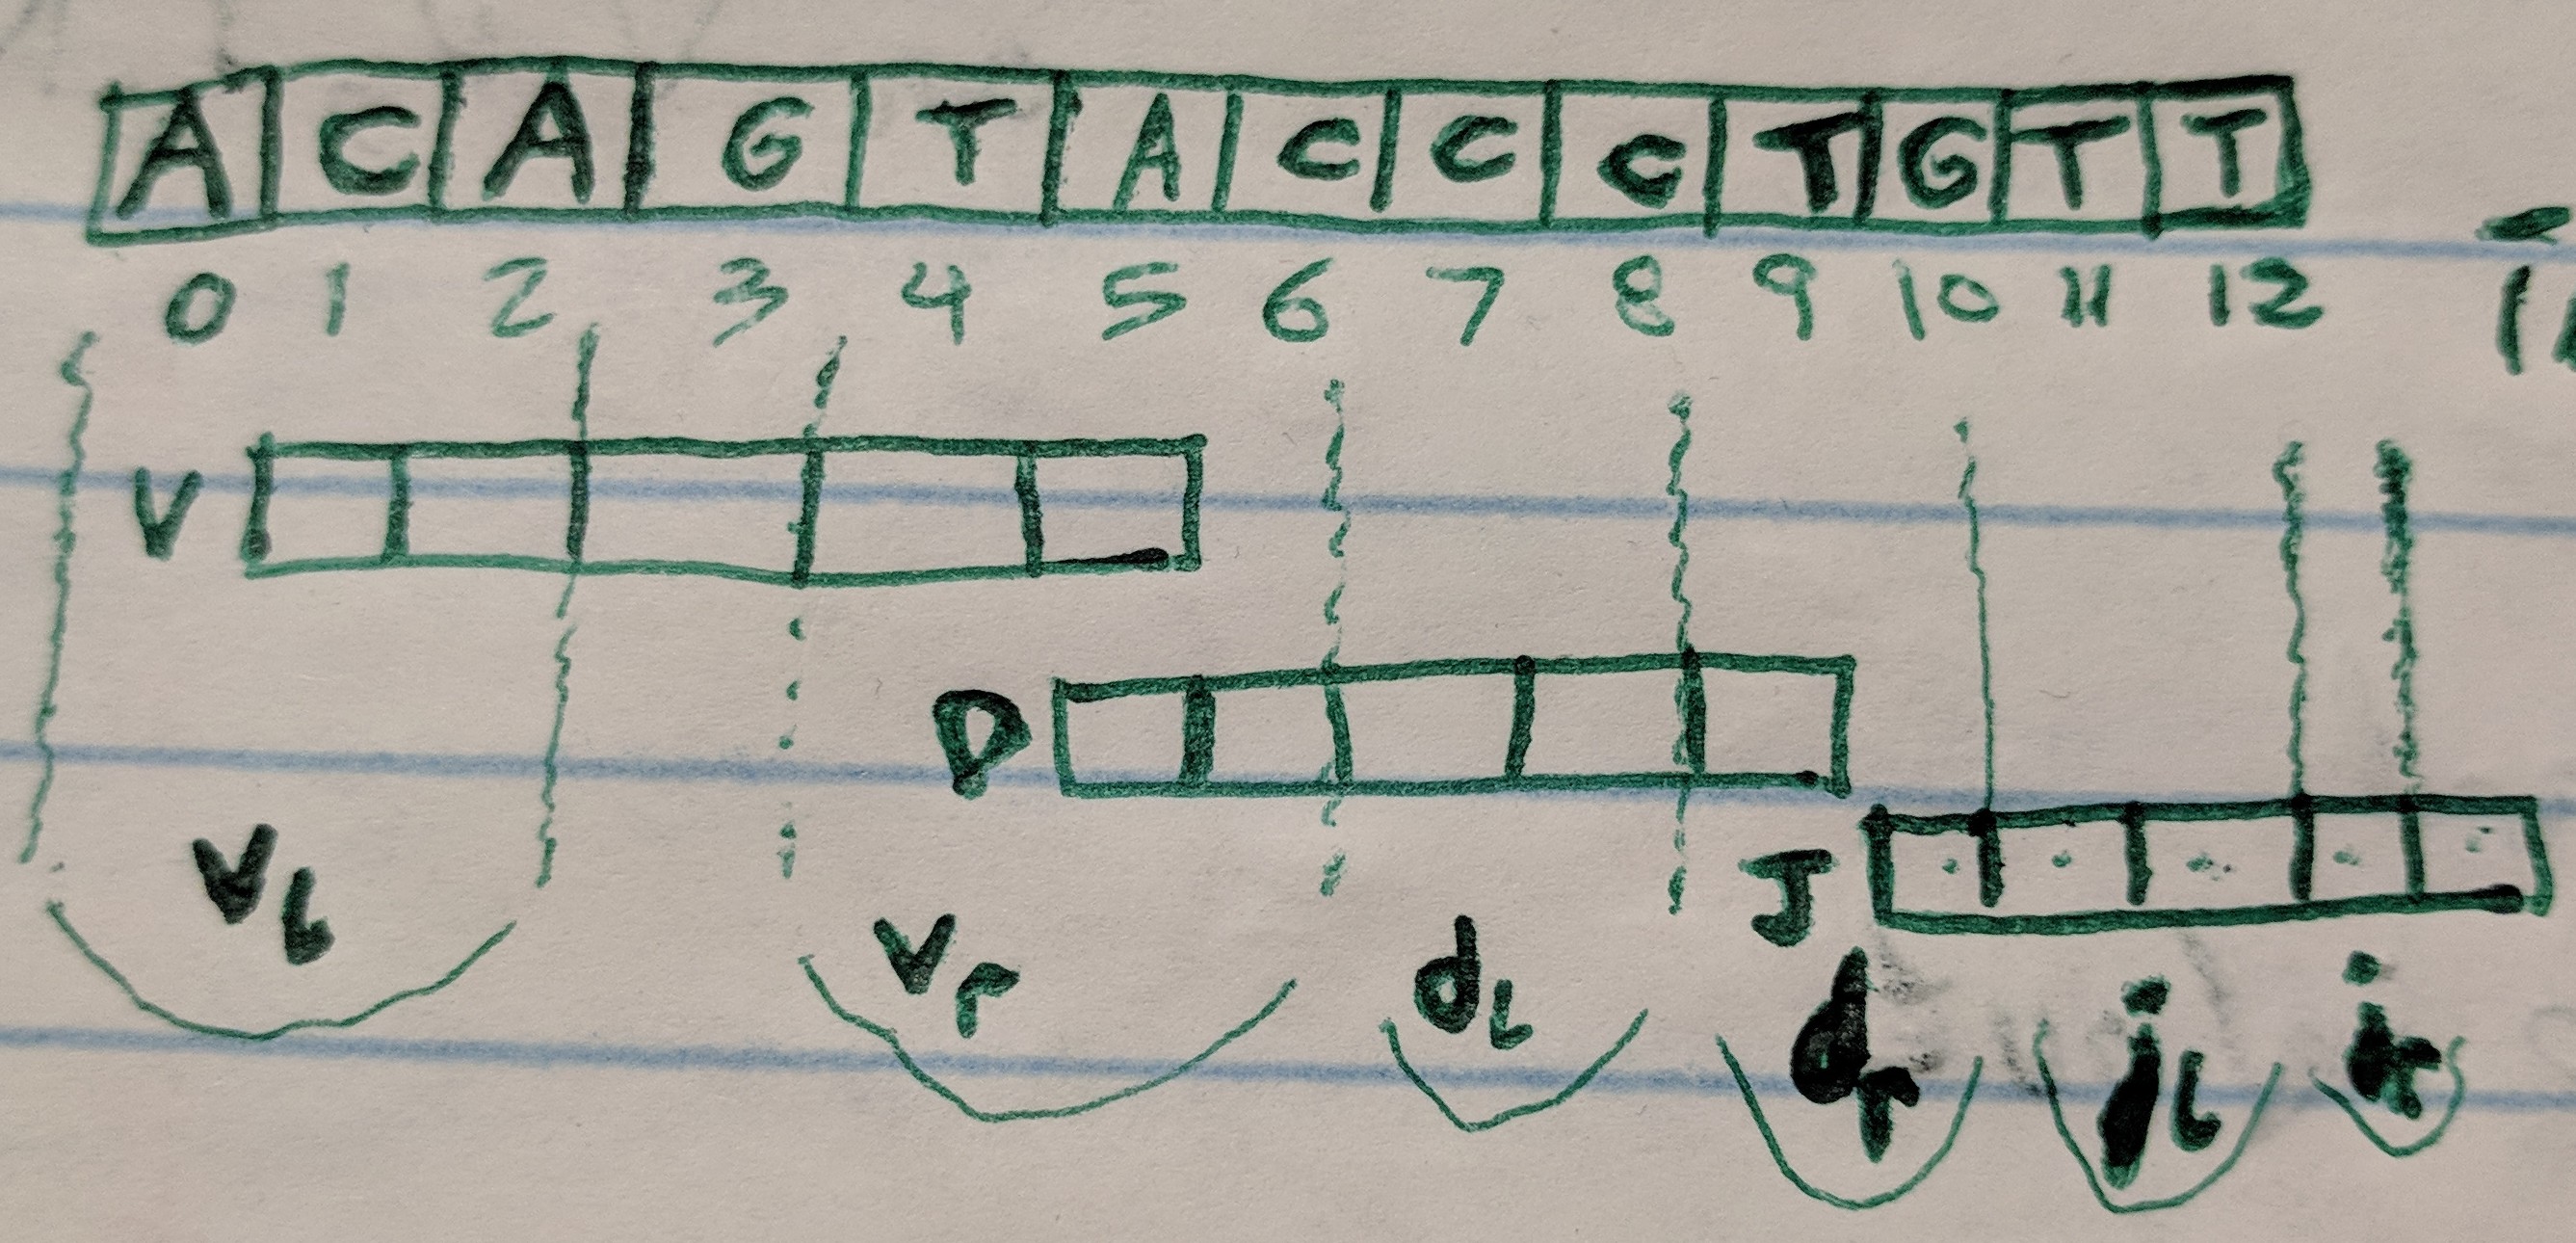 A C A G T A C C C T G T T
0 1 2 3 4 5 6 7 8 9 10 11 12
V
D
J
V_l V_r d_l d_r j_l j_r